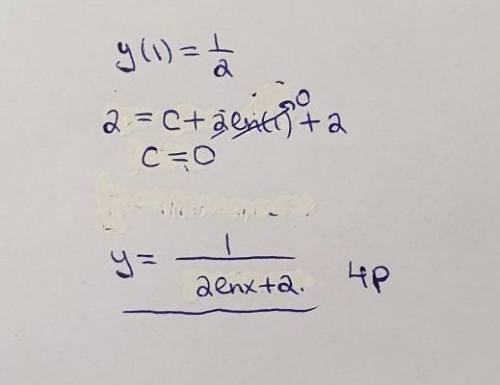 y(1) = 1/2
2 = C + 2ln(1) 0 + 2
C = 0
y = 1/(2lnx + 2.) 4p